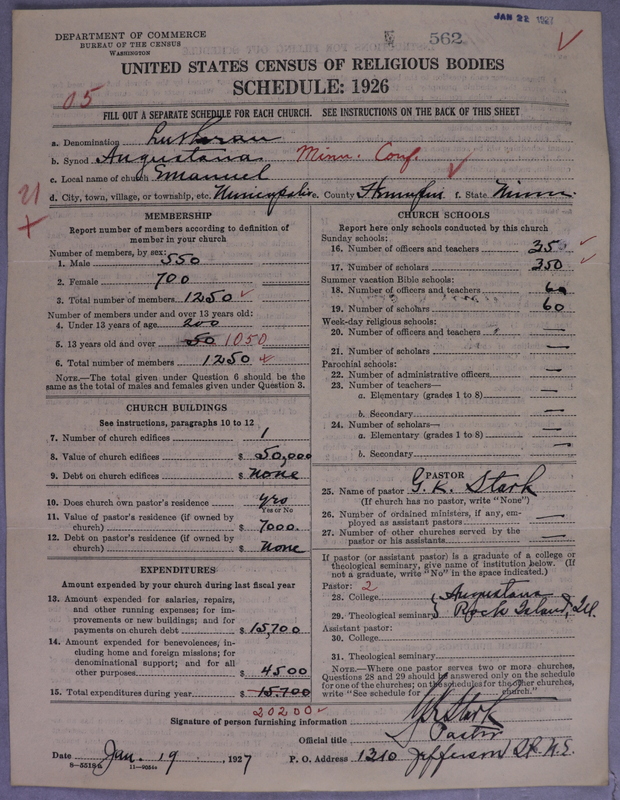 JAN 22 1927
DEPARTMENT OF COMMERCE
BUREAU OF THE CENSUS
WASHINGTON
562
UNITED STATES CENSUS OF RELIGIOUS BODIES
SCHEDULE: 1926
05
FILL OUT A SEPARATE SCHEDULE FOR EACH CHURCH. SEE INSTRUCTIONS ON THE BACK OF THIS SHEET
a. Denomination Lutheran
b. Synod Augustana Minn. Conf.
c. Local name of church Emanuel
d. City, town, village, or township, etc. e. County f. State Minn.
21
MEMBERSHIP
Report number of members according to definition of
member in your church
Number of members, by sex:
1. Male 550
2. Female 700
3. Total number of members 1250
Number of members under and over 13 years old:
4. Under 13 years of age 200
5. 13 years old and over 50 1050
6. Total number of members 1250
NOTE.—The total given under Question 6 should be the
same as the total of males and females given under Question 3.
CHURCH BUILDINGS
See instructions, paragraphs 10 to 12
7. Number of church edifices 1
8. Value of church edifices $ 50,000
9. Debt on church edifices $ none
10. Does church own pastor's residence yes
Yes or No
11. Value of pastor's residence (if owned by
church) $ 7000.
12. Debt on pastor's residence (if owned by
church) $ None
EXPENDITURES
Amount expended by your church during last fiscal year
13. Amount expended for salaries, repairs,
and other running expenses; for im-
provements or new buildings; and for
payments on church debt $ 15,700
14. Amount expended for benevolences, in-
cluding home and foreign missions; for
denominational support; and for all
other purposes $ 4500
15. Total expenditures during year $ 15.700
20200
CHURCH SCHOOLS
Report here only schools conducted by this church
Sunday schools:
16. Number of officers and teachers 35
17. Number of scholars 350
Summer vacation Bible schools:
18. Number of officers and teachers
19. Number of scholars 60
Week-day religious schools:
20. Number of officers and teachers —
21. Number of scholars —
Parochial schools:
22. Number of administrative officers —
23. Number of teachers—
a. Elementary (grades 1 to 8) —
b. Secondary —
24. Number of scholars—
a. Elementary (grades 1 to 8) —
b. Secondary —
PASTOR
25. Name of pastor G. K. Stark
(If church has no pastor, write "None")
26. Number of ordained ministers, if any, em-
ployed as assistant pastors —
27. Number of other churches served by the
pastor or his assistants —
If pastor (or assistant pastor) is a graduate of a college or
theological seminary, give name of institution below. (If
not a graduate, write "No" in the space indicated.)
Pastor: 2
28. College Augustana
29. Theological seminary Rock Island, Ill.
Assistant pastor:
30. College
31. Theological seminary
NOTE.—Where one pastor serves two or more churches,
Questions 28 and 29 should be answered only on the schedule
for one of the churches; on the schedules for the other churches,
write "See schedule for church."
Signature of person furnishing information G K Stark
Official title Pastor
Date Jan. 19, 1927 P. O. Address 1310 Jefferson St. N.E.
8—5518a 11—9054